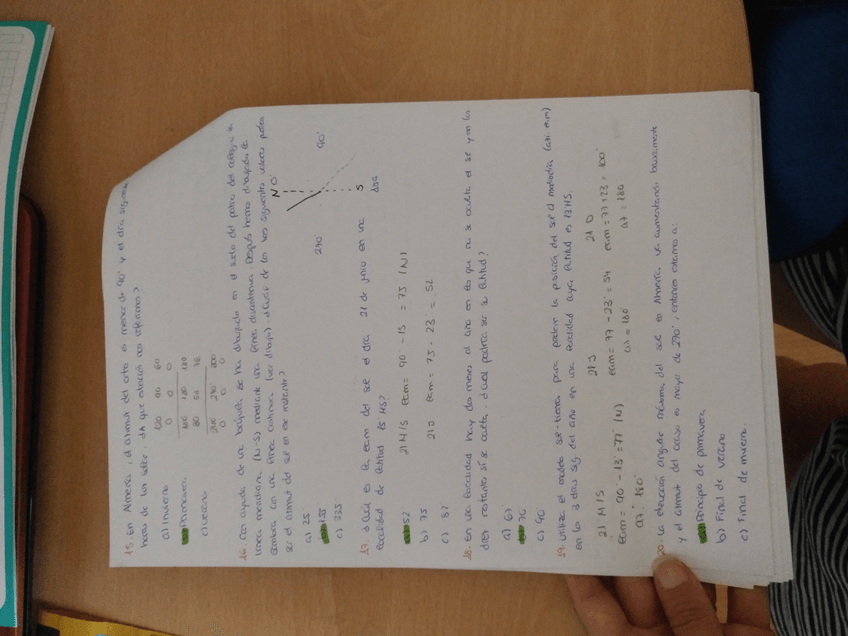 15. En Almería, el azimut del orto es menor de 90° y el día sig
horas de luz solar. ¿A que estación nos referimos?
a) Invierno
b) Primavera
c) Verano
120 90 60
0 0 0
180
80 54
270
0 0
16. Con ayuda de una brújula, se ha dibujado en el suelo del patio del colegio la
línea meridiana (N-S) mediante una línea discontinua. Después hemos dibujado la
sombra con una línea continua (ver dibujo). ¿Cuál de los tres siguientes valores podría
ser el azimut del sol en ese instante?
a) 25
b) 155
c) 335
N 0°
90°
270°
S
17. ¿Cuál es la eam del sol el día 21 de junio en una
localidad de latitud 15 N?
a) 52
b) 75
c) 82
21 M/S eam = 90 - 15 = 75 (N)
21 J eam = 75 - 23 = 52
18. En una localidad hay dos meses al año en los que no se oculta el sol y en los
diez restantes sí se oculta. ¿Cuál podría ser su latitud?
a) 67
b) 70
c) 90
19. Utiliza el modelo sol-tierra para predecir la posición del sol al mediodía
en los 3 días sig. del año en una localidad cuya latitud es 13
21 M/S
eam = 90 - 13 = 77 (N)
az = 180°
21 J
eam = 77 - 23 = 54
az = 180°
21 D
eam = 77 + 23 = 100°
az = 180
20. La elevación angular máxima del sol en Almería va aumentando
y el azimut del ocaso es mayor de 270°, entonces estamos a:
a) Principio de primavera
b) Final de verano
c) Final de invierno.